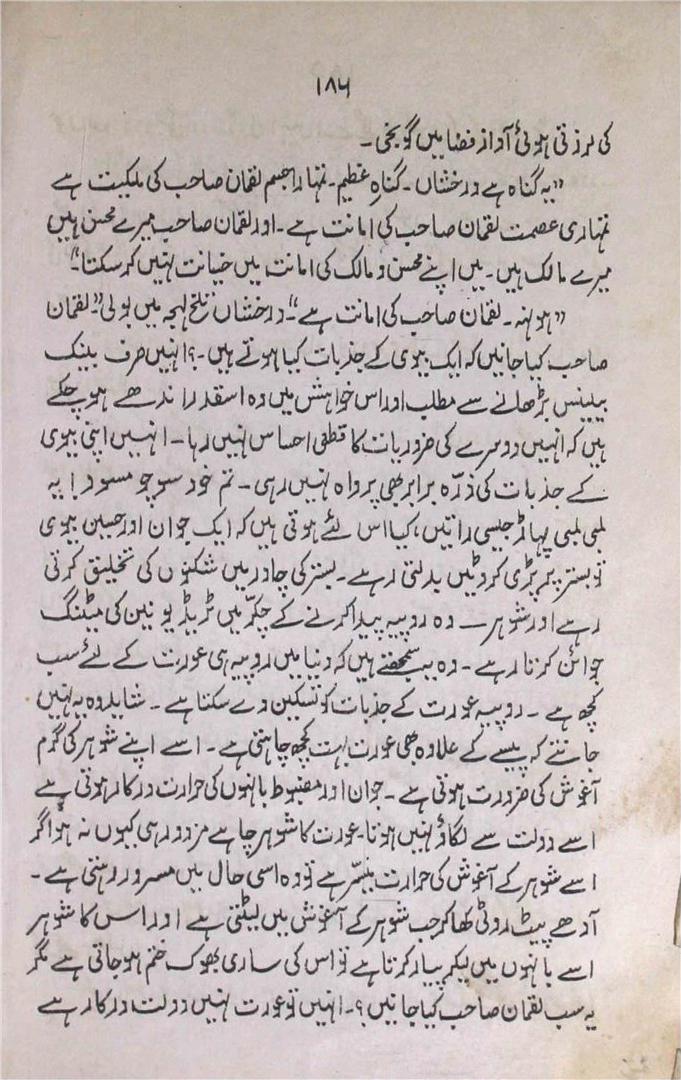 ۱۸۶
کی لرزتی ہوئی آواز فضا میں گونجی۔
”یہ گناہ ہے درخشاں۔ گناہِ عظیم۔ تمہارا جسم لقمان صاحب کی ملکیت ہے
تمہاری عصمت لقمان صاحب کی امانت ہے۔ اور لقمان صاحب میرے محسن ہیں
میرے مالک ہیں۔ میں اپنے محسن و مالک کی امانت میں خیانت نہیں کر سکتا“
”ہونہہ۔ لقمان صاحب کی امانت ہے“۔ درخشاں تلخ لہجہ میں بولی ”۔ لقمان
صاحب کیا جانیں کہ ایک بیوی کے جذبات کیا ہوتے ہیں۔؟ انہیں صرف بینک
بیلینس بڑھانے سے مطلب اور اس خواہش میں وہ اسقدر اندھے ہو چکے
ہیں کہ انہیں دوسرے کی ضروریات کا قطعی احساس نہیں رہا۔ انہیں اپنی بیوی
کے جذبات کی ذرّہ برابر بھی پرواہ نہیں رہی۔ تم خود سوچو مسعود! یہ
لمبی لمبی پہاڑ جیسی راتیں، کیا اس لئے ہوتی ہیں کہ ایک جوان اور حسین بیوی
تو بستر پر پڑی کروٹیں بدلتی رہے۔ بستر کی چادر میں شکنوں کی تخلیق کرتی
رہے اور شوہر — وہ روپیہ پیدا کرنے کے چکّر میں ٹریڈ یونین کی میٹنگ
جوائن کرتا رہے۔ وہ یہ سمجھتے ہیں کہ دنیا میں روپیہ ہی عورت کے لئے سب
کچھ ہے۔ روپیہ عورت کے جذبات کو تسکین دے سکتا ہے۔ شاید وہ یہ نہیں
جانتے کہ پیسے کے علاوہ بھی عورت بہت کچھ چاہتی ہے۔ اسے اپنے شوہر کی گرم
آغوش کی ضرورت ہوتی ہے۔ جوان اور مضبوط بانہوں کی حرارت درکار ہوتی ہے
اسے دولت سے لگاؤ نہیں ہوتا۔ عورت کا شوہر چاہے مزدور ہی کیوں نہ ہو اگر
اسے شوہر کے آغوش کی حرارت میسّر ہے تو وہ اسی حال میں مسرور رہتی ہے۔
آدھے پیٹ روٹی کھا کر جب شوہر کے آغوش میں لیٹتی ہے اور اس کا شوہر
اسے بانہوں میں لیکر پیار کرتا ہے تو اس کی ساری بھوک ختم ہو جاتی ہے مگر
یہ سب لقمان صاحب کیا جانیں؟۔ انہیں تو عورت نہیں دولت درکار ہے